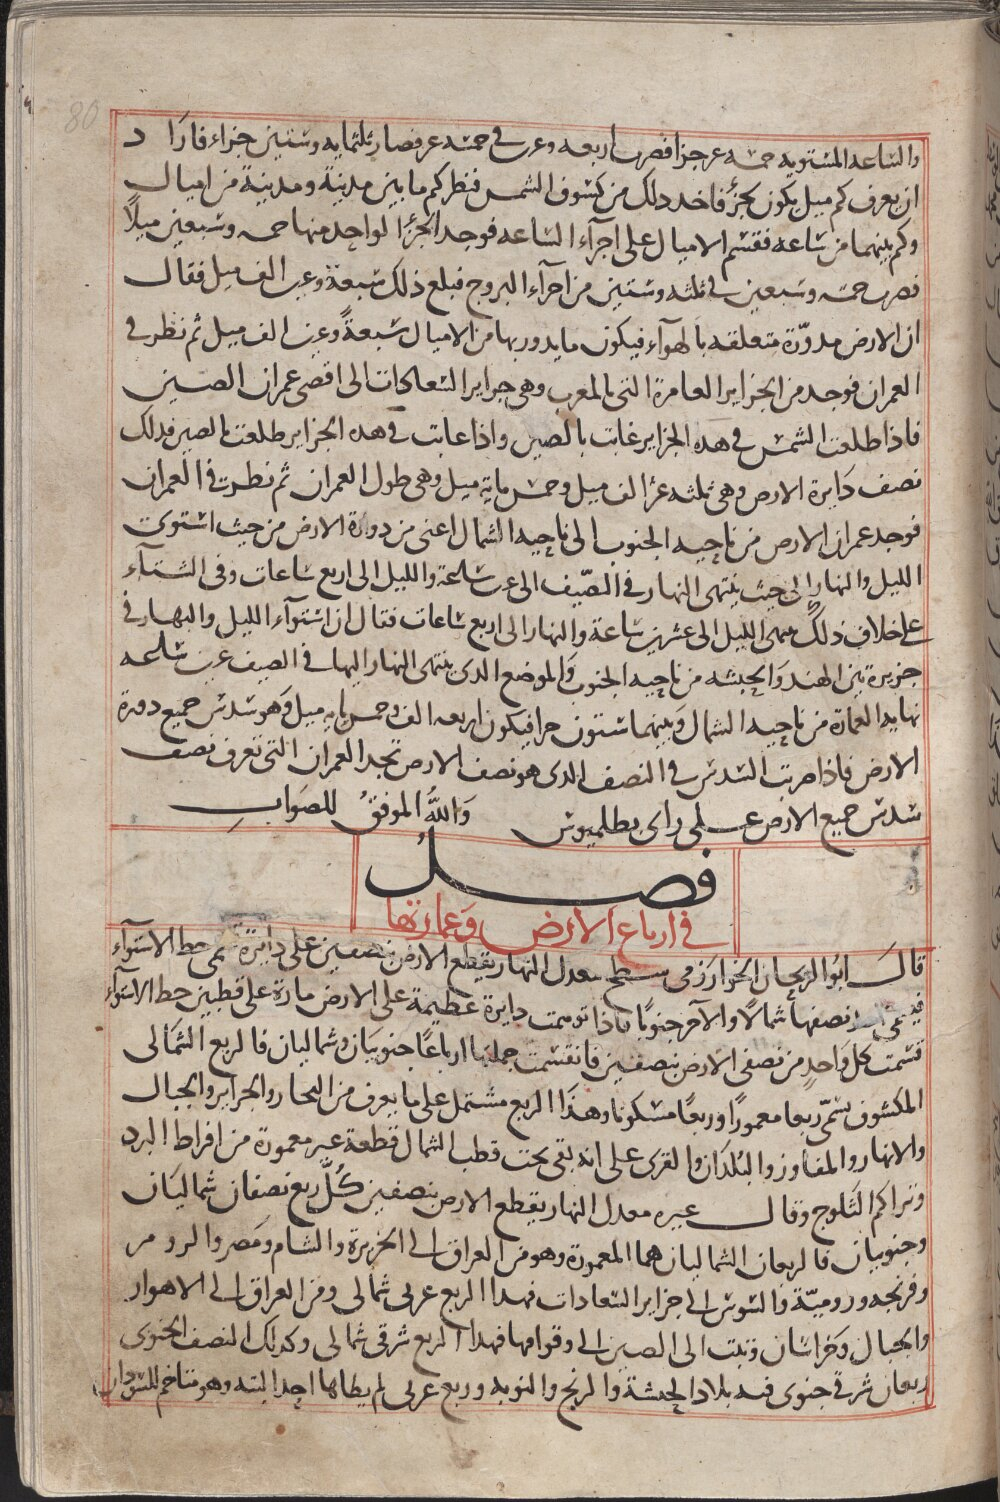 والساعه المستويه خمسه عشر جزا فضرب اربعه وعشرين في خمسه عشر فصار ثلثمايه وستين جزاء فاراد
ان يعرف كم ميل يكون الجزؤ فاخد دلك من كسوف الشمس فنظر كم ما بين مدينة ومدينة من اميال
وكم بينهما من ساعه فقسم الاميال على اجزآء الساعه فوجد الجزؤ الواحد منها خمسه وسبعين ميلاً
فضرب خمسه وسبعين في ثلثمه وستين من اجزآء البروج فبلغ ذلك سبعة وعشرين الف ميل فقال
ان الارض مدوّرة متعلقه بالهوآء فيكون ما يدور بها من الاميال سبعةً وعشرين الف ميل ثم نظر في
العمران فوجد من الجزاير العامرة التي بالمغرب وهى جزاير السعادات الى اقصى عمران الصين
فاذا طلعت الشمس في هده الجزاير غابت بالصين واذا غابت في هده الجزاير طلعت بالصين فدلك
نصف دايرة الارض وهى ثلثه عشر الف ميل وخمس مايه ميل وهى طول العمران ثم نظرت في العمران
فوجد عمران الارض من ناحيه الجنوب الى ناحيه الشمال اعنى من دورة الارض من حيث استوى
الليل والنهار الى حيث ينتهى النهار في الصّيف الى عشرين ساعة والليل الى اربع ساعات وفى الشتآء
على خلاف ذلك ينتهى الليل الى عشرين ساعة والنهار الى اربع ساعات فقال ان استوآء الليل والنهار في
جزيرة بين الهند والحبشه من ناحيه الجنوب والموضع الدى ينتهى النهار اليها في الصيف عشرين ساعه
نهايه العمارة من ناحيه الشمال وبينهما ستون جزا فيكون اربعه الف وخمس مايه ميل وهو سدس جميع دورة
الارض فاذا ضربت السدس في النصف الدى هو نصف الارض تجد العمران التى تعرف نصف
سدس جميع الارض على راى بطلميوس والله الموفق للصواب
فصل
في ارباع الارض وعمارتها
قال ابو الريحان الخوارزمى سطح معدل النهار يقطع الارض بنصفين على دايرة تسمى خط الاستوآء
نصفها شمالًا والآخر جنوبًا فاذا توهمت دايرة عظيمة على الارض مارة على قطبين خط الاستوآء
قسمت كل واحد من نصفى الارض بنصفين فانقسمت جملتها ارباعًا جنوبيان وشماليان فالربع الشمالى
المكشوف يسمّى ربعا معمورًا وربعًا مسكونا وهذا الربع مشتمل على ما يعرف من البحار والجزاير والجبال
والانهار والمفاوز والبلدان والقرى على انه بقى تحت قطب الشمال قطعة غير معمورة من افراط البرد
وتراكم الثلوج وقال غيره معدل النهار يقطع الارض بنصفين كُلّ ربع نصفان شماليان
وجنوبيان فالربعان الشماليان هما المعمورة وهو من العراق الى الجزيرة والشام ومصر والروم
وفرنجه ورومیّة والسوس الى جزاير السعادات فهدا الربع غربى شمالى ومن العراق الى الاهواز
والجبال وخراسان وتبت الى الصين الى وقواقها فهدا الربع شرقى شمالى وكدلك النصف الجنوبى
ربعان شرقى جنوبى فيه بلاد الحبشة والزنج والنوبه وربع غربى لم يطاها احد البته وهو متاخم للسودان